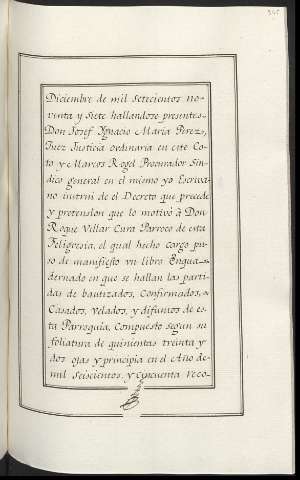 Diciembre de mil Setecientos no-
venta y Siete hallandose presentes
Don Josef Ygnacio Maria Perez,
Juez Justicia ordinaria en este Co-
to y Marcos Rogel Procurador Sin-
dico general en el mismo yo Escriva-
no instrui de el Decreto que precede
y pretension que lo motivó â Don
Roque Villar Cura Parroco de esta
Feligresia, el qual hecho cargo pu-
so de manifiesto un libro Enqua-
dernado en que se hallan las parti-
das de bautizados, Confirmados,
Casados, velados, y difuntos de es-
ta Parroquia, Compuesto segun su
foliatura de quinientas treinta y
dos ojas y principia en el Año de
mil Seiscientos, y Cincuenta reco-